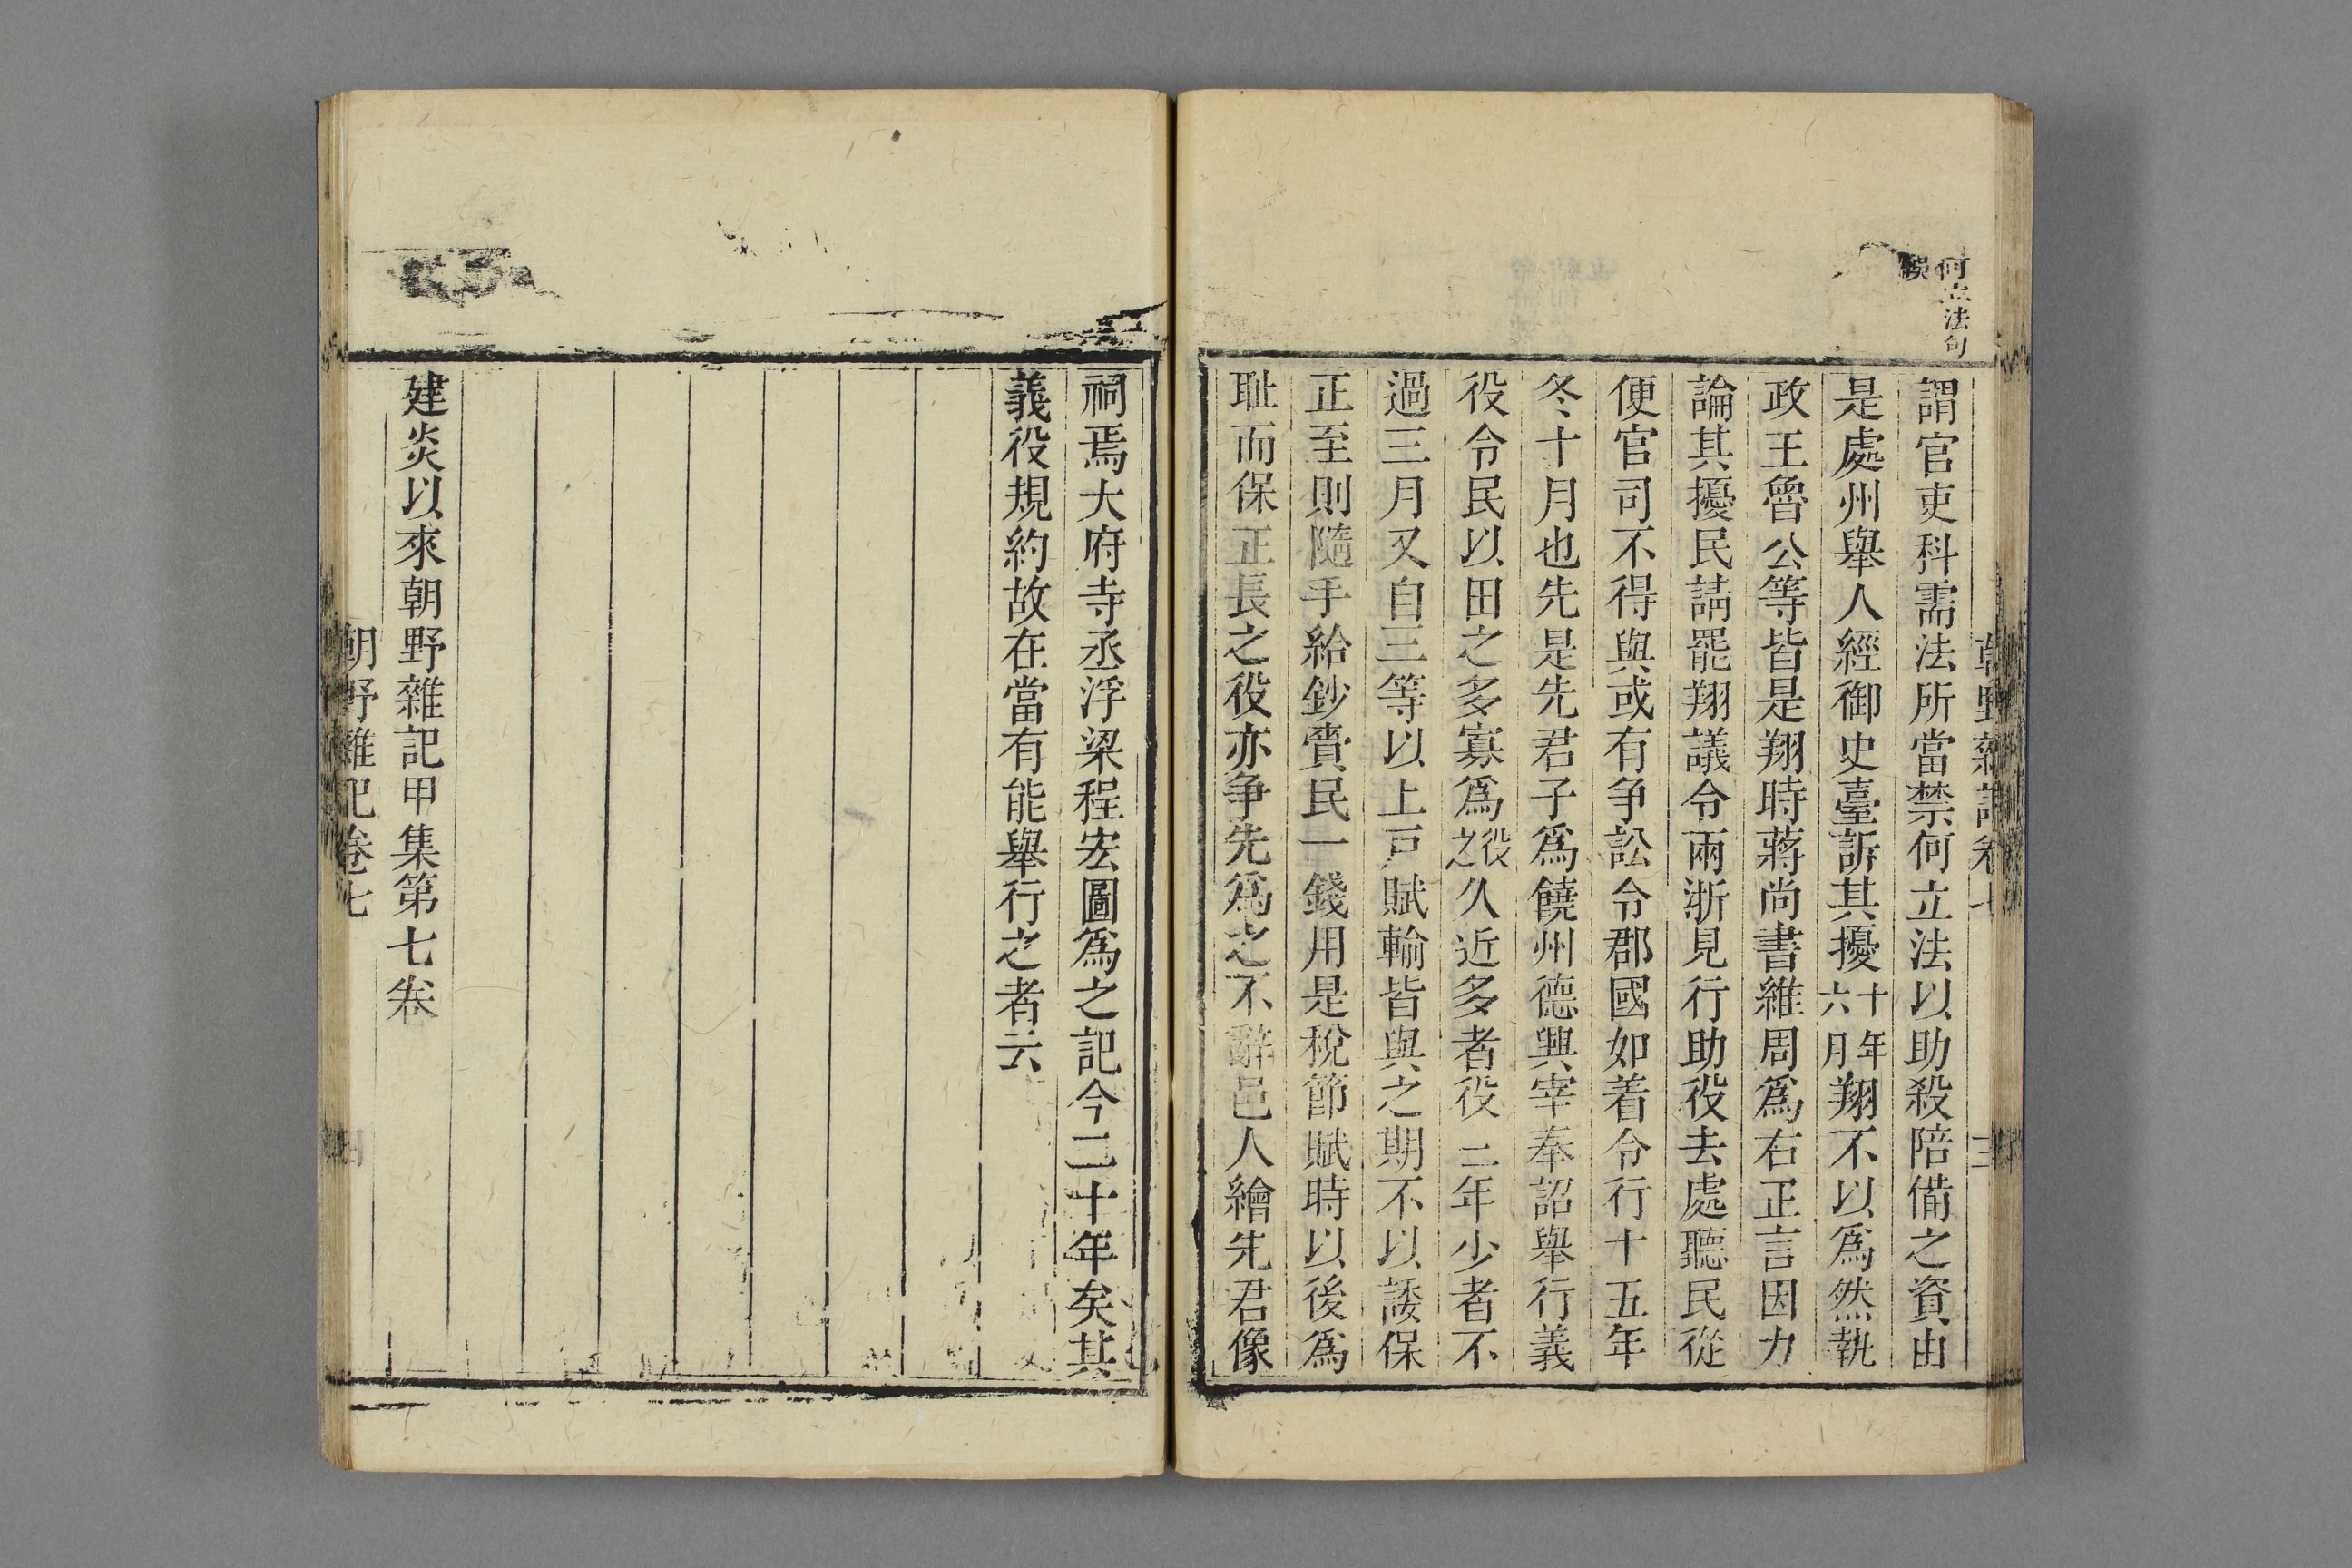 何立法句
誤
謂官吏科需法所當禁何立法以助殺陪備之資由
是處州舉人經御史臺訴其擾十年六月翔不以爲然執
政王魯公等皆是翔時蔣尚書繼周爲右正言因力
論其擾民請罷翔議令兩浙見行助役去處聽民從
便官司不得與或有争訟令郡國如着令行十五年
冬十月也先是先君子爲饒州德興宰奉詔舉行義
役令民以田之多寡爲役之久近多者役二年少者不
過三月又自三等以上戸賦輸皆與之期不以諉保
正至則隨手給鈔賫民一錢用是稅節賦時以後爲
耻而保正長之役亦争先爲之不辭邑人繪先君像
祠焉大府寺丞浮梁程宏圖爲之記今二十年矣其
義役規約故在當有能舉行之者云
建炎以來朝野雜記甲集第七卷
朝野雜記卷七